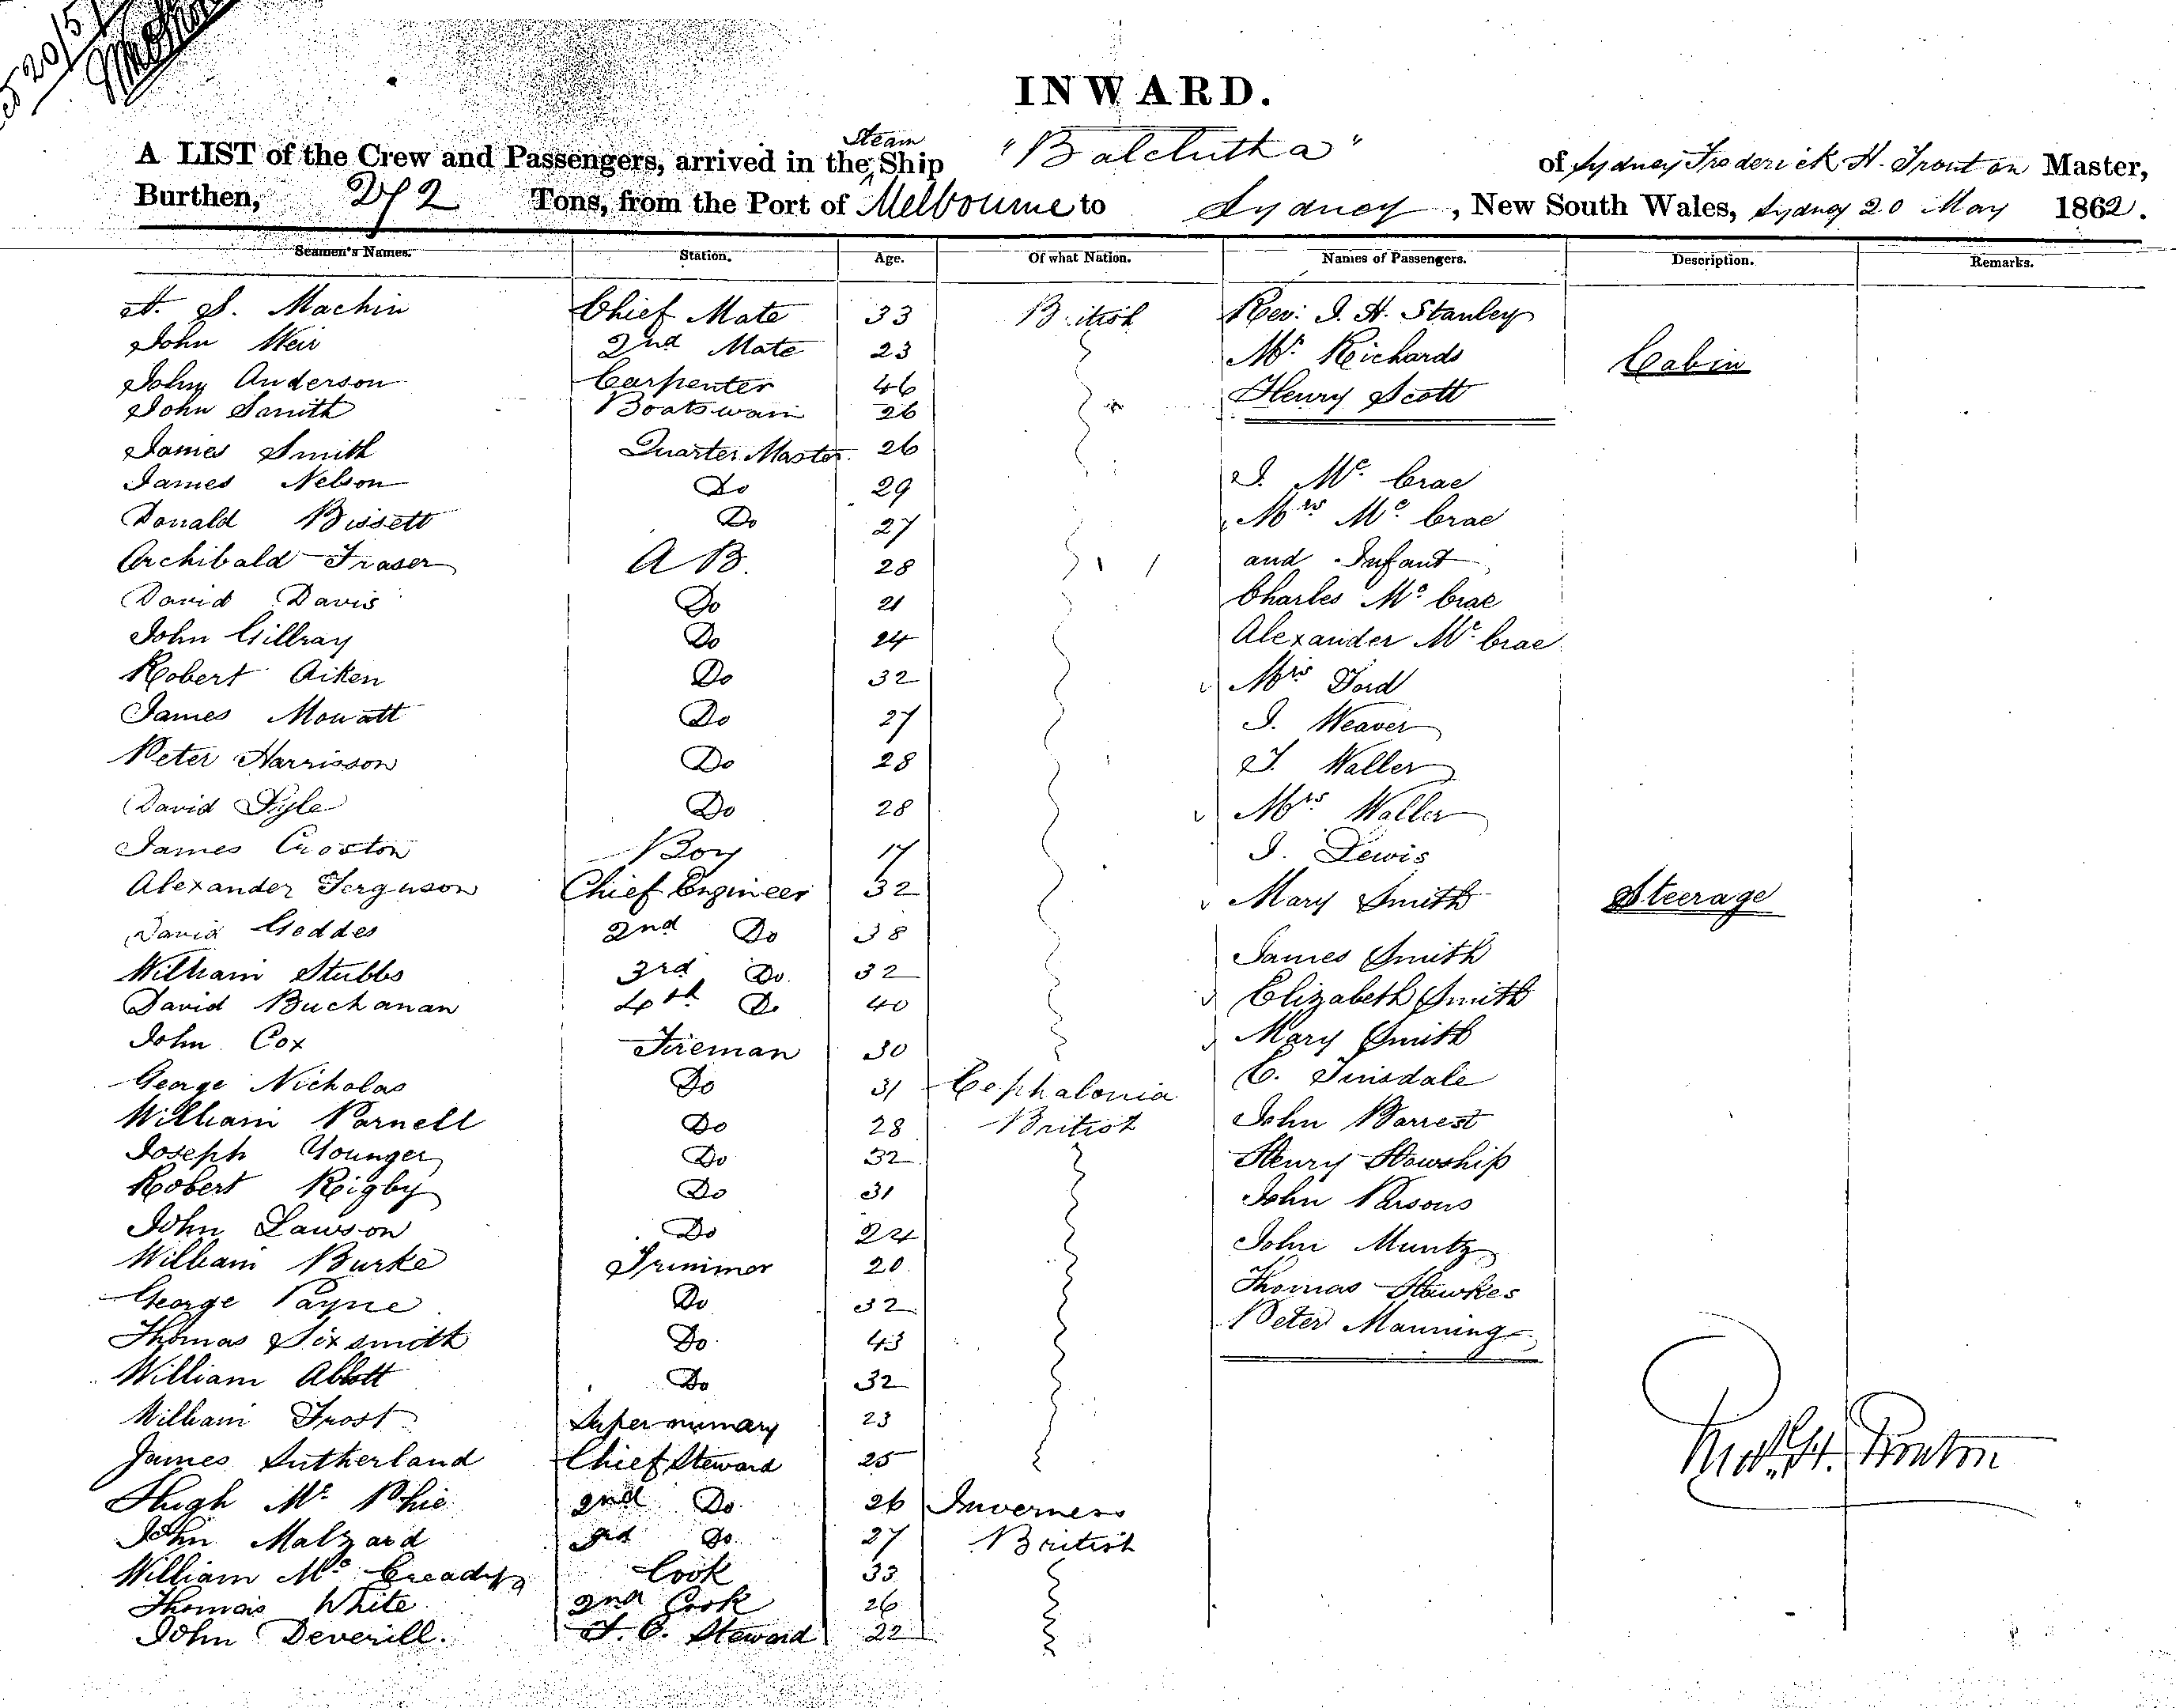 20/5
INWARD.
A LIST of the Crew and Passengers, arrived in the Steam Ship "Balclutha" of Sydney Frederick H. Trouton Master,
Burthen, 272 Tons, from the Port of Melbourne to Sydney, New South Wales, Sydney 20 May 1862.
Seamen's Names. Station. Age. Of what Nation. Names of Passengers. Description. Remarks.
A. S. Machin Chief Mate 33 British Rev: J. H. Stanley
John Weir 2nd Mate 23 Mr. Richards Cabin
John Anderson Carpenter 46 Henry Scott
John Smith Boatswain 26
James Smith Quarter Master 26
James Nelson Do 29 J. Mc. Crae
Donald Bissett Do 27 Mrs Mc. Crae
Archibald Fraser A B. 28 and Infant
David Davis Do 21 Charles Mc. Crae
John Gillray Do 24 Alexander Mc. Crae
Robert Aiken Do 32 Mrs Ford
James Mowatt Do 27 J. Weaver
Peter Harrisson Do 28 T. Waller
David Lyle Do 28 Mrs Waller
James Croston Boy 17 J. Lewis
Alexander Ferguson Chief Engineer 32 Mary Smith Steerage
David Geddes 2nd Do 38 James Smith
William Stubbs 3rd Do. 32 Elizabeth Smith
David Buchanan 4th Do 40 Mary Smith
John Cox Fireman 30 C. Tinsdale
George Nicholas Do 31 Cephalonia John Barrest
William Parnell Do 28 British Henry Howship
Joseph Younger Do 32 John Parsons
Robert Rigby Do 31 John Muntz
John Lawson Do 24 Thomas Hawkes
William Burke Trimmer 20 Peter Manning
George Payne Do 32
Thomas Sixsmith Do. 43
William Abbott Do 32
William Frost Supernumary 23
James Sutherland Chief Steward 25
Fred. H. Trouton
Hugh Mc. Phie 2nd Do. 26 Inverness
John Malzard 3rd Do. 27 British
William Mc. Cready Cook 33
Thomas White 2nd Cook 26
John Deverill. F. C. Steward 22